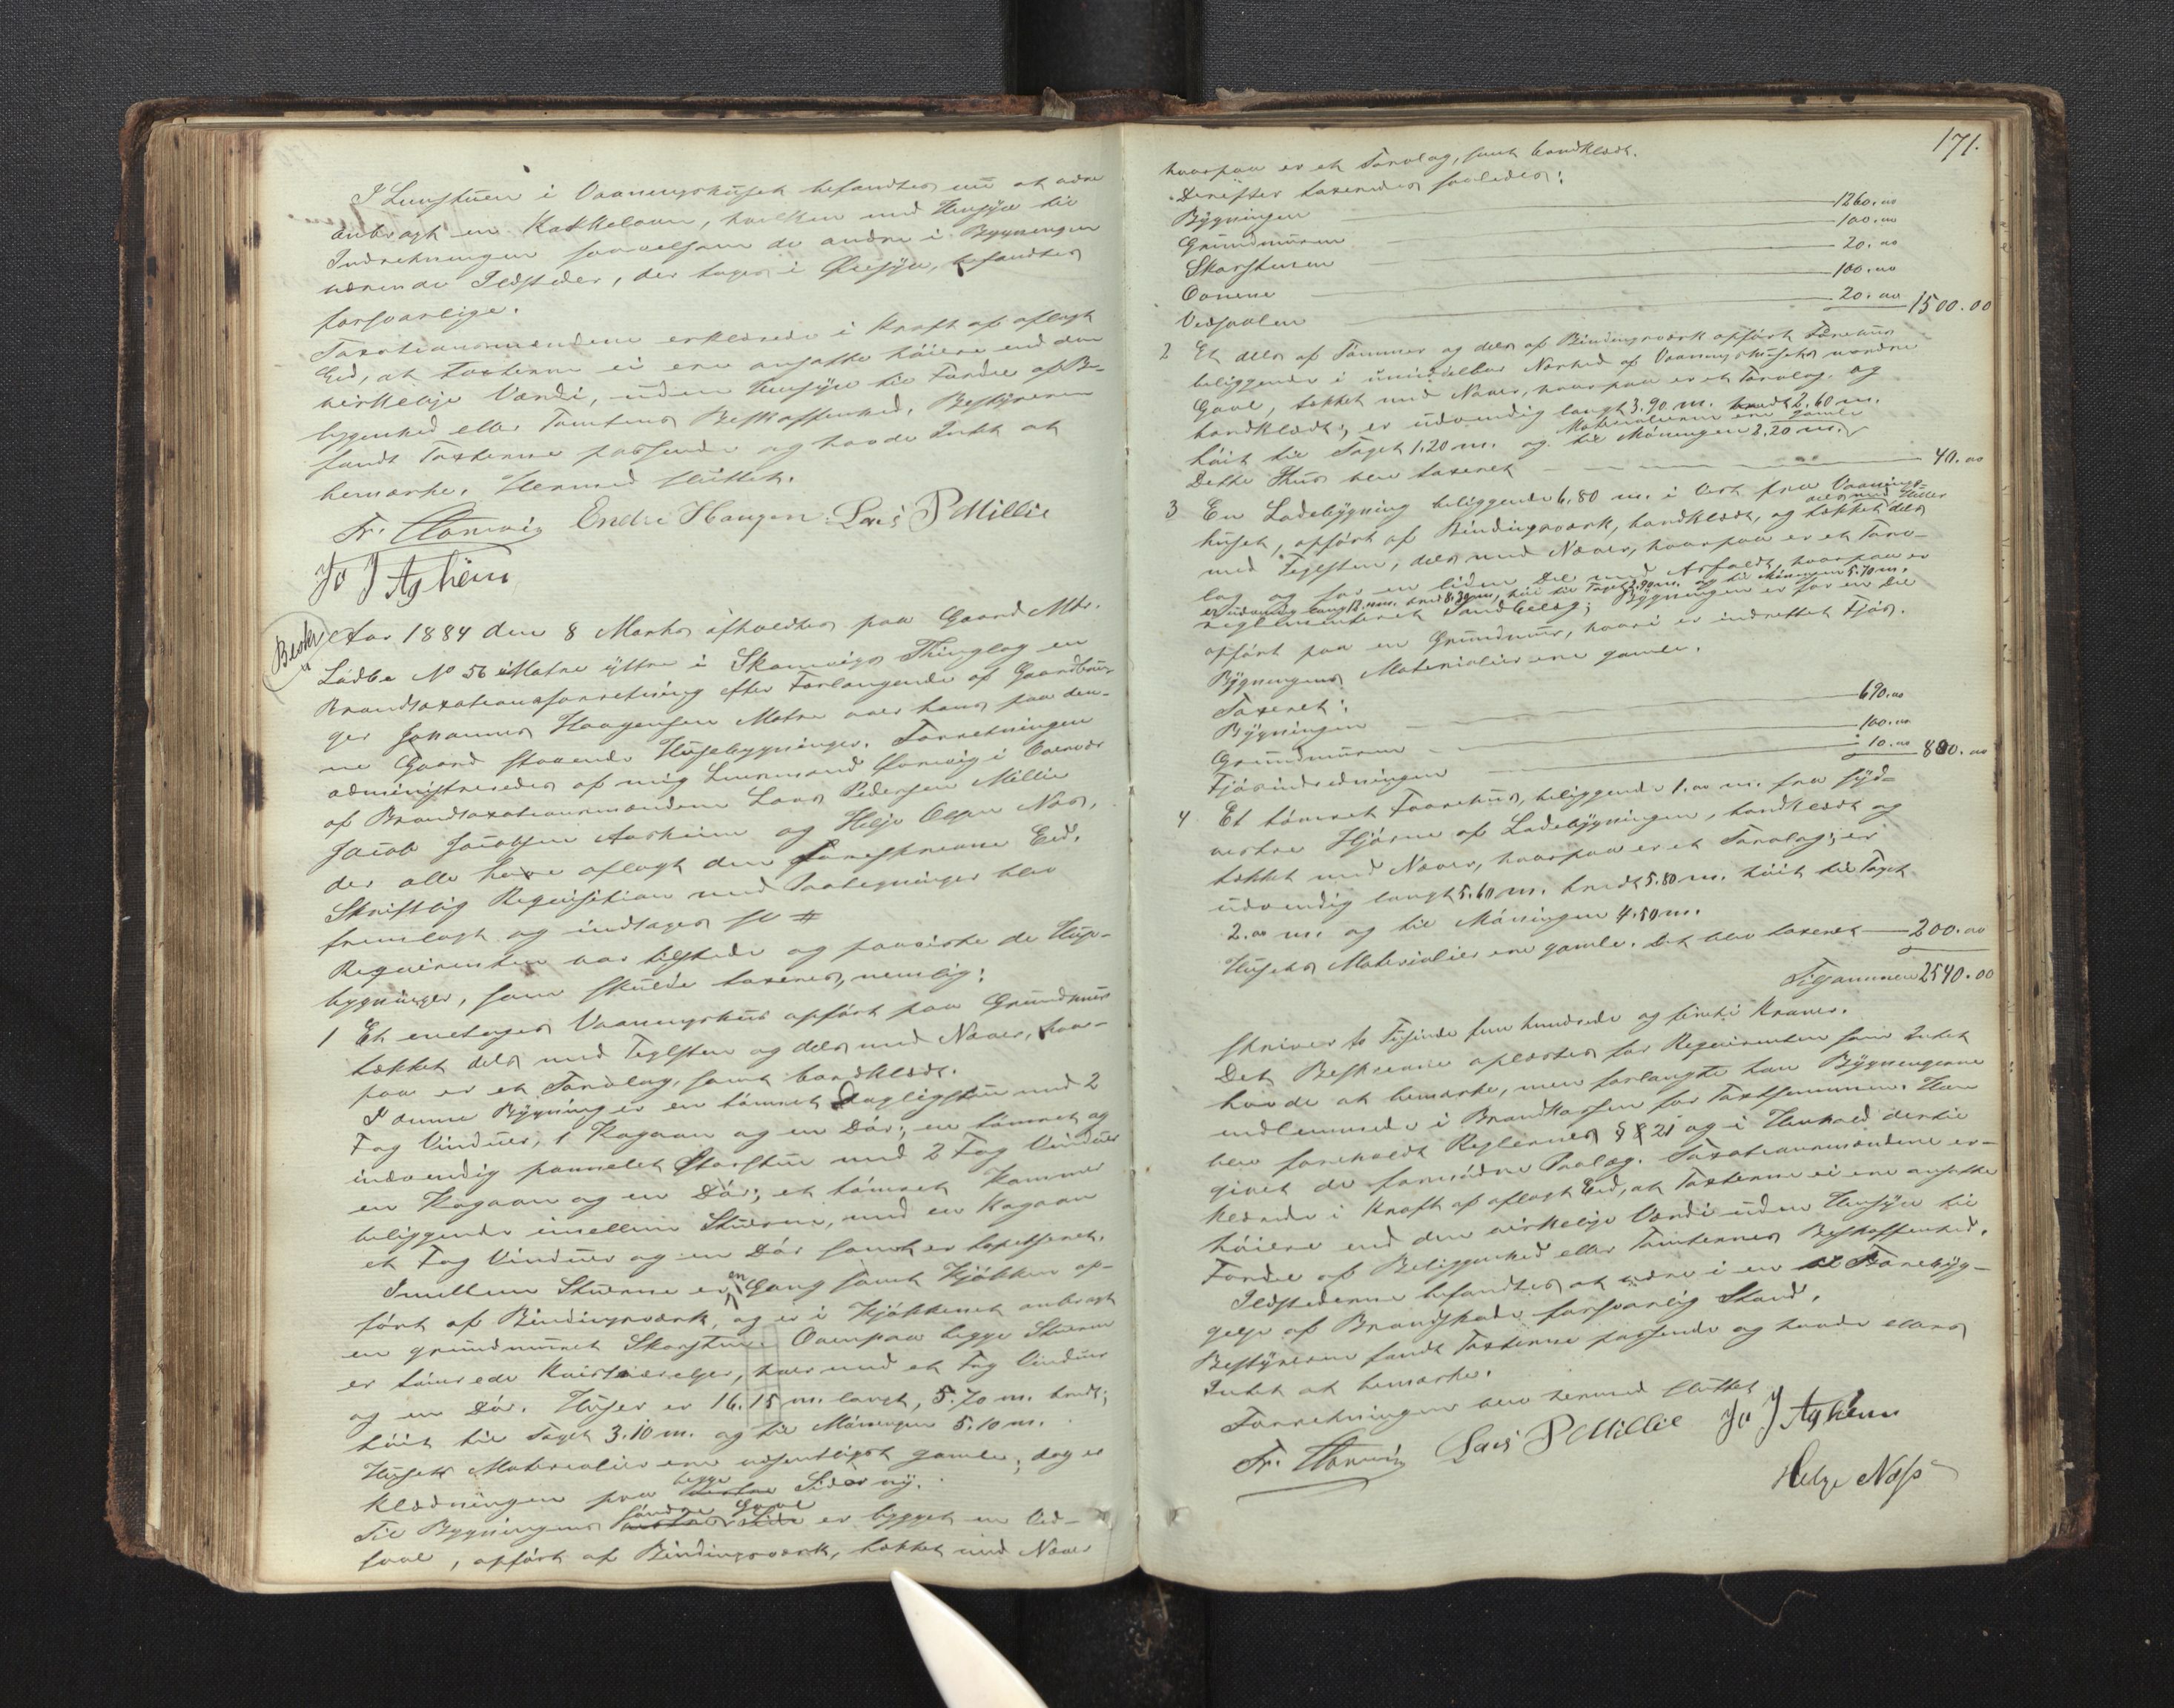 I Lunstuen i Vaaningshuset befandtes nu at være
anbragt en Kakkelovn, hvilken med Hensyn til
Indretningen saavelsom de andre i Bygningen
værende Ildsteder, der toges i Øiesyn, befandtes
forsvarlige.
Taxationsmændene erklærede i Kraft af aflagt
Eed, at Taxterne ei ere ansatte høiere end den
virkelige Værdi, uden Hensyn til Fordel af Be-
liggenhed eller Tomtens Beskaffenhed. Bestyreren
fandt Taxterne passende og havde Intet at
bemærke. Hermed sluttet.
Endre Haugen. Lars P Millie
Jo J Asheim
Beskr
Aar 1884 den 8 Marts afholdtes paa Gaard Mtr.
Løbe No 56 Matre yttre i Skonevigs Thinglag en
Brandtaxationsforretning efter Forlangende af Gaardbru-
ger Johannes Haagensen Matre over hans paa den-
ne Gaard staaende Husebygninger. Forretningen
administreredes af mig Lensmand i Overvær
af Brandtaxationsmændene Lars Pedersen Millie
Jacob Jacobsen Aasheim og Helje Olsen Næs,
der alle have aflagt den foreskrevne Eed.
Skriftlig Reqvisition med Paategninger blev
fremlagt og indtages #
Reqvirenten var tilstede og paaviste de Huse-
bygninger, som skulde taxeres, nemlig:
1 Et enetages Vaaningshus opført paa Grundmur
tækket dels med Teglsten og dels med Næver, hvor-
paa er et Torvlag, samt bordklædt.
I denne Bygning er en tømret Dagligstue med 2
Fag Vinduer, 1 Kogovn og en Dør; en tømret og
indvendig pannelet Storstue med 2 Fag Vinduer
en Kogovn og en Dør; et tømret Kammer
beliggende imellem Stuerne, med en Kogovn
et Fag Vinduer og en Dør samt er tapetseret.
Imellem Stuerne er en Gang samt Kjøkken op-
ført af Bindingsværk, og er i Kjøkkenet anbragt
en grundmuret Skorsten. Ovenpaa begge Stuerne
er tømrede Kvistværelser, hver med et Fag Vinduer
og en Dør. Huset er 16.15 m. langt, 5.70 m. bredt;
høit til Taget 3.10 m. og til Møningen 5.10 m.
Husets Materialier ere væsentligst gamle, dog er
Klædningen paa begge Sider ny.
Til Bygningens søndre Gavl er bygget en Ved-
sval, opført af Bindingsværk, tækket med Næver
171.
hvorpaa er et Torvlag, samt bordklædt.
Derefter taxeredes saaledes:
Bygningen 1260.00
Grundmuren 100.00
Skorstenen 20.00
Ovnene 100.00
Vedsvalen 20.00 1500.00
2 Et dels af Tømmer og dels af Bindingsværk opført
beliggende i umiddelbar Nærhed af Vaaningshusets nordre
Gavl, tækket med Næver, hvorpaa er et Torvlag og
bordklædt; er udvendig langt 3.90 m. bredt 2.60 m.
høit til Taget 1.20 m. og til Møningen 2.20 m.
Materialierne ere gamle
Dette Hus blev taxeret 40.00
3 En Ladebygning beliggende 6.80 m. i Vest fra Vaanings-
huset, opført af Bindingsværk, bordklædt, og tækket dels
med Teglsten, dels med Næver, hvorpaa er et Torv-
lag og for en liden Del med Asfaldt, hvorpaa er
reglementeret Sandbelæg; Bygningen er for en Del
opført paa en Grundmur, hvori er indrettet Fjøs.
Bygningens Materialier ere gamle.
Taxeret:
Bygningen 690.00
Grundmuren 100.00
Fjøsindredningen 10.00 800.00
4 Et tømret Faarehus, beliggende 1.00 m. fra syd-
vestre Hjørne af Ladebygningen, bordklædt og
tækket med Næver, hvorpaa er et Torvlag; er
udvendig langt 5.60 m. bredt 5.80 m. høit til Taget
2.00 m. og til Møningen 4.50 m.
Husets Materialier ere gamle. Det blev taxeret 200.00
Tilsammen 2540.00
skriver to Tusinde fem hundrede og firti Kroner.
Det Beskrevne oplæstes for Reqvirenten som Intet
havde at bemærke, men forlangte han Bygningerne
indlemmede i Brandkassen for Taxtsummen. Han
blev foreholdt Reglernes § 21 og i Henhold dertil
givet de fornødne Paalæg. Taxationsmændene er-
klærede i Kraft af aflagt Eed, at Taxterne ei ere ansatte
høiere end den virkelige Værdi uden Hensyn til
Fordel af Beliggenhed eller Tomternes Beskaffenhed.
Ildstederne befandtes at være i en til Forebyg-
gelse af Brandskade forsvarlig Stand.
Bestyreren fandt Taxterne passende og havde ellers
Intet at bemærke.
Forretningen blev hermed sluttet
Lars P Millie Jo J Asheim
Helge Næss